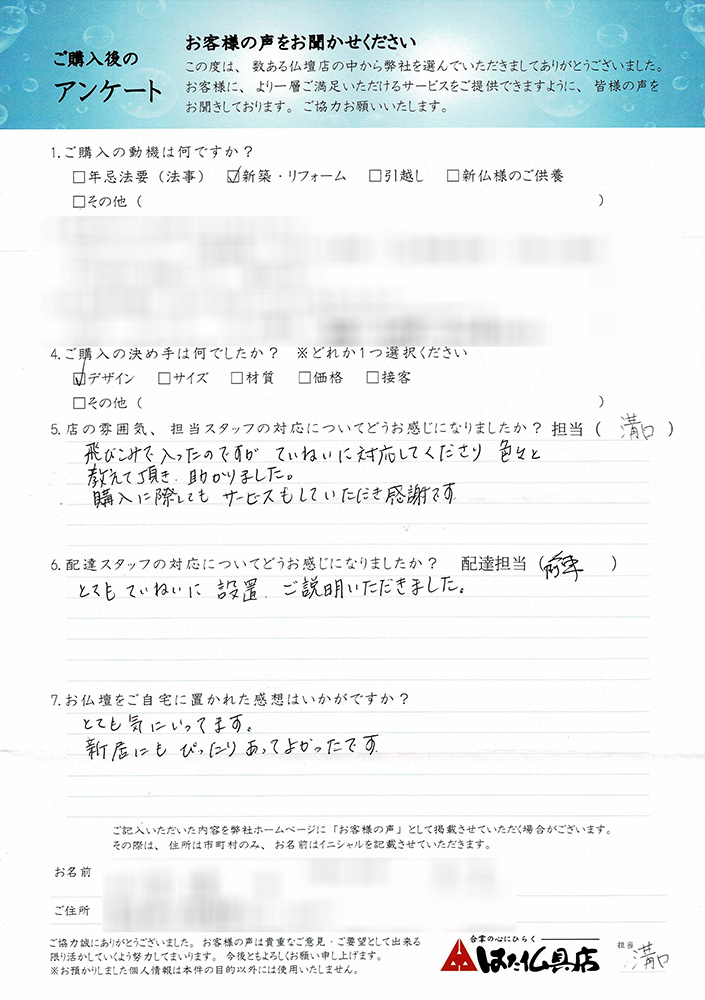 ご購入後の
アンケート
お客様の声をお聞かせください
この度は、数ある仏壇店の中から弊社を選んでいただきましてありがとうございました。
お客様に、より一層ご満足いただけるサービスをご提供できますように、皆様の声を
お聞きしております。ご協力お願いいたします。
1.ご購入の動機は何ですか？
□年忌法要（法事） ☑新築・リフォーム □引越し □新仏様のご供養
□その他（ ）
4.ご購入の決め手は何でしたか？ ※どれか1つ選択ください
☑デザイン □サイズ □材質 □価格 □接客
□その他（ ）
5.店の雰囲気、担当スタッフの対応についてどうお感じになりましたか？ 担当（ 溝口 ）
飛びこみで入ったのですが ていねいに対応してくださり 色々と
教えて頂き 助かりました。
購入に際しても サービスもしていただき感謝です
6.配達スタッフの対応についてどうお感じになりましたか？ 配達担当（ ）
とてもていねいに 設置、ご説明いただきました。
7.お仏壇をご自宅に置かれた感想はいかがですか？
とても気にいってます。
新居にも ぴったりあってよかったです
ご記入いただいた内容を弊社ホームページに「お客様の声」として掲載させていただく場合がございます。
その際は、住所は市町村のみ、お名前はイニシャルを記載させていただきます。
お名前
ご住所
ご協力誠にありがとうございました。お客様の声は貴重なご意見・ご要望として出来る
限り活かしていくよう努力してまいります。今後ともよろしくお願い申し上げます。
※お預かりしました個人情報は本件の目的以外には使用いたしません。
合掌の心にひらく
はた仏具店
担当 溝口